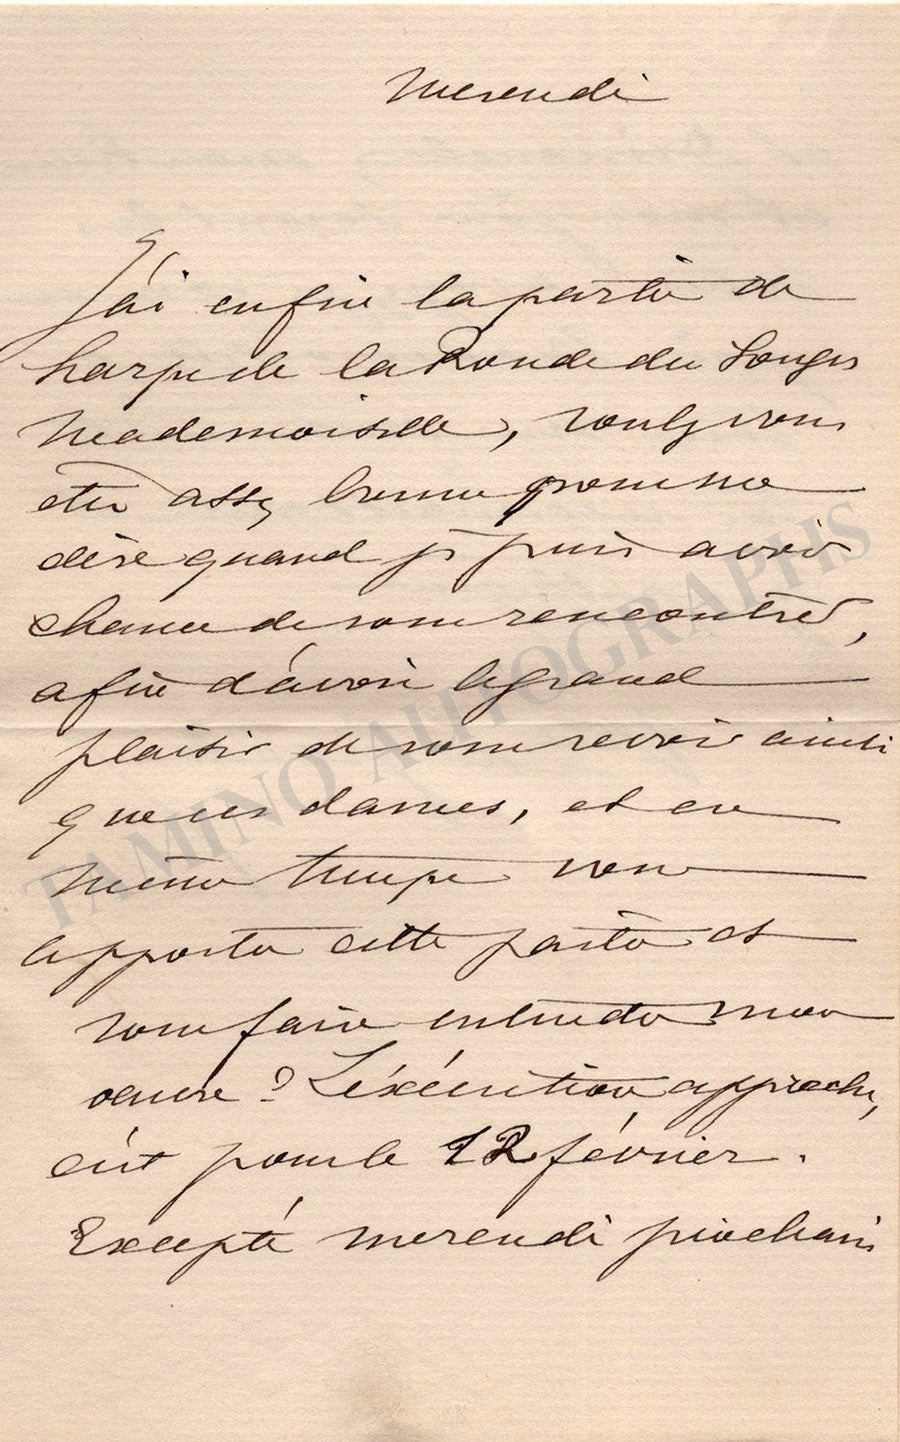 Mercredi
J'ai enfin la partie de
harpe de la Ronde des Songes
Mademoiselle, voulez vous
être assez bonne pour me
dire quand je puis avoir
chance de vous rencontrer,
afin d'avoir le grand
plaisir de vous revoir ainsi
que ces dames, et en
même temps vous
apporter cette partie et
vous faire entendre mon
oeuvre ? L'éxécution approche,
c'est pour le 12 février.
Excepté mercredi prochain
TAMINO AUTOGRAPHS